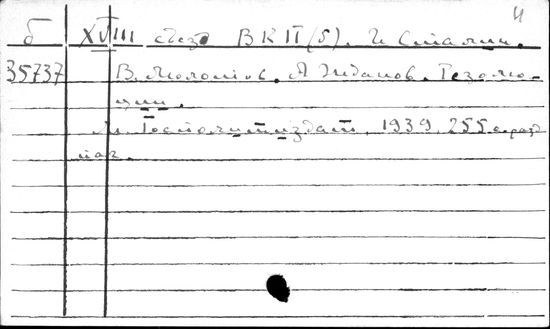 4
б XVIII съезд ВКП(б). И Сталин.
35737 В. Молотов. А Жданов. Резолю-
ции.
М. Госполитиздат, 1939. 255 с. разд
паг.